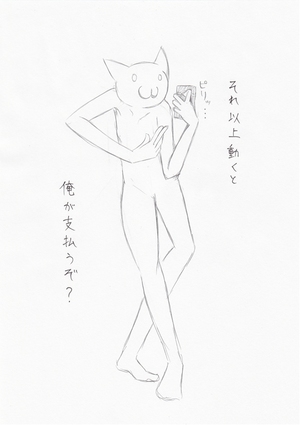 それ以上動くと
ピリッ…
俺が支払うぞ?